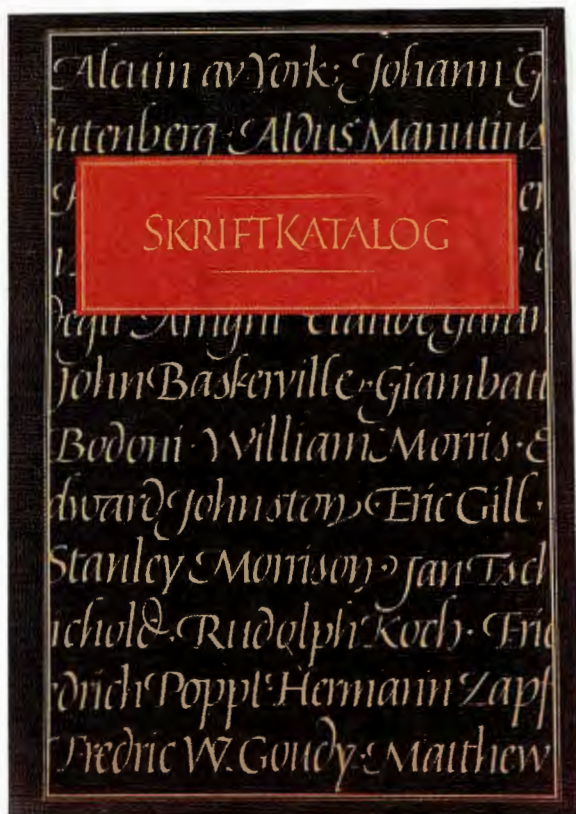 Alcuin av York · Johann G
utenberg · Aldus Manutius
SKRIFTKATALOG
John Baskerville · Giambatt
Bodoni · William Morris · E
dward Johnston · Eric Gill ·
Stanley Morrison · Jan Tsch
ichold · Rudolph Koch · Frie
drich Poppl · Hermann Zapf
Fredric W. Goudy · Matthew